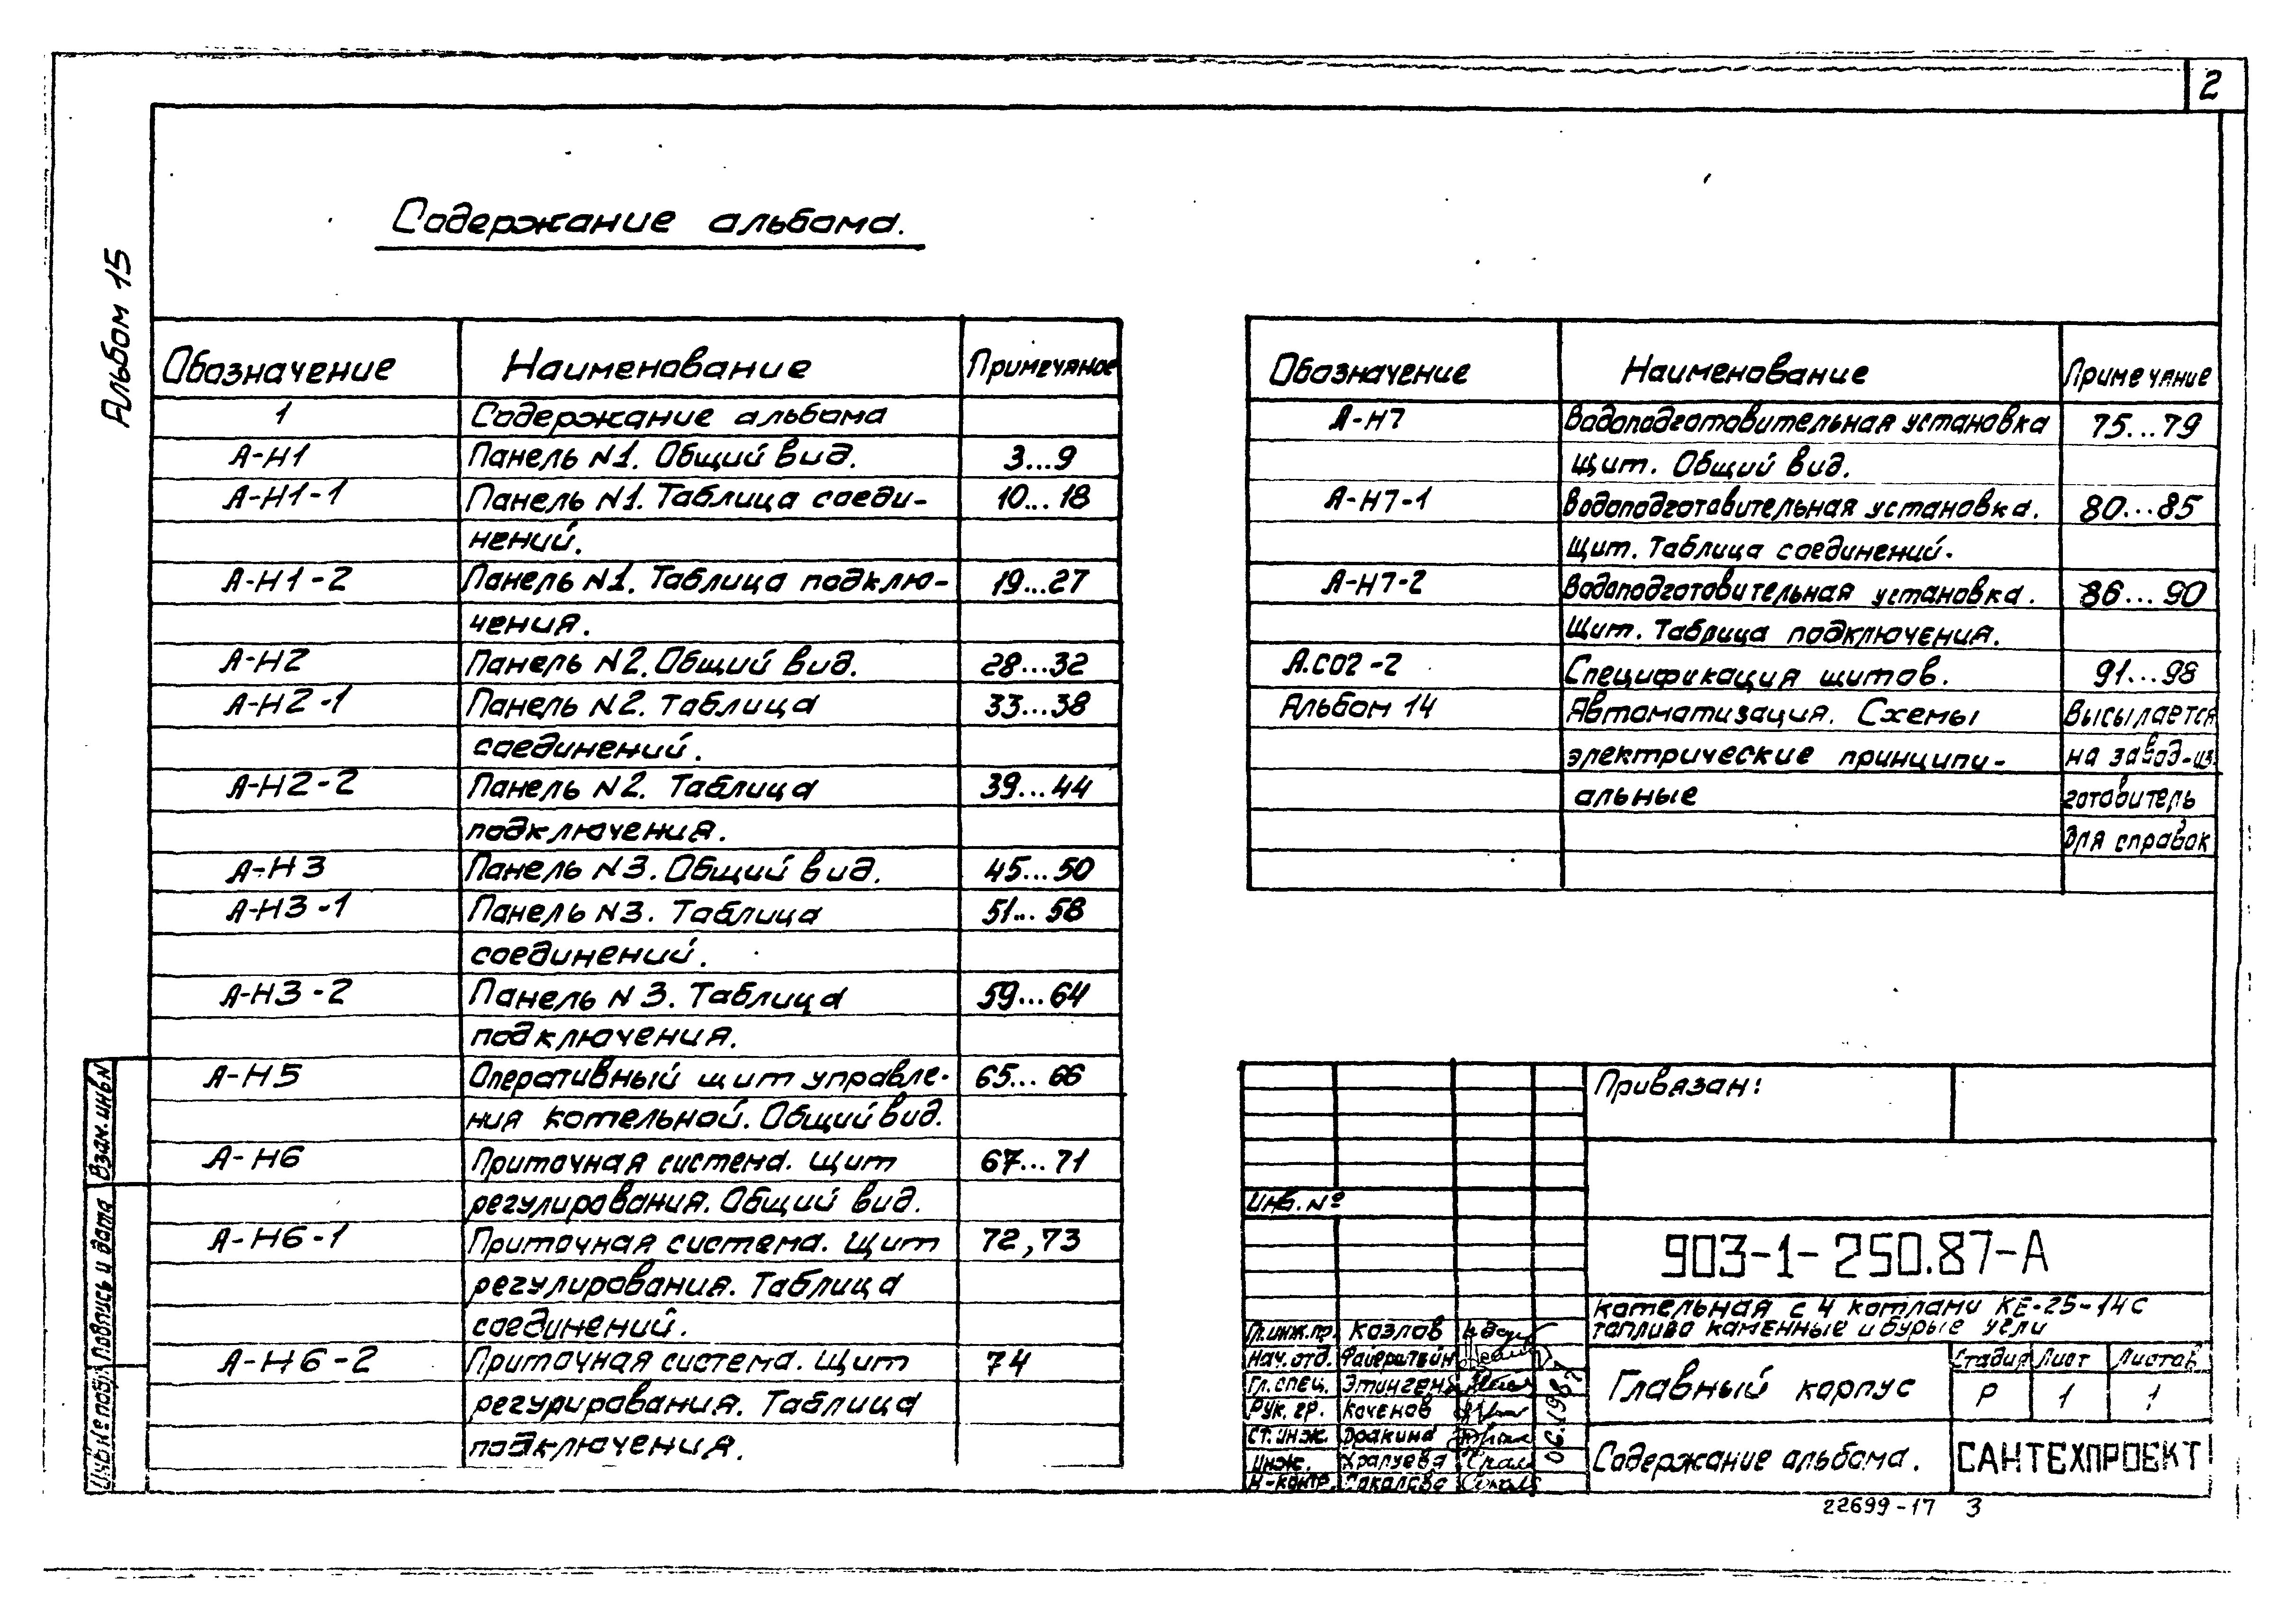 2
Альбом 15
Содержание альбома.
Обозначение Наименование Примечание
1 Содержание альбома
А-Н1 Панель N1. Общий вид. 3...9
А-Н1-1 Панель N1. Таблица соеди- 10...18
нений.
А-Н1-2 Панель N1. Таблица подклю- 19...27
чения.
А-Н2 Панель N2. Общий вид. 28...32
А-Н2-1 Панель N2. Таблица 33...38
соединений.
А-Н2-2 Панель N2. Таблица 39...44
подключения.
А-Н3 Панель N3. Общий вид. 45...50
А-Н3-1 Панель N3. Таблица 51...58
соединений.
А-Н3-2 Панель N3. Таблица 59...64
подключения.
А-Н5 Оперативный щит управле- 65...66
ния котельной. Общий вид.
А-Н6 Приточная система. Щит 67...71
регулирования. Общий вид.
А-Н6-1 Приточная система. Щит 72,73
регулирования. Таблица
соединений.
А-Н6-2 Приточная система. Щит 74
регурирования. Таблица
подключения.
Обозначение Наименование Примечание
А-Н7 Водоподготовительная установка 75...79
Щит. Общий вид.
А-Н7-1 Водоподготовительная установка. 80...85
Щит. Таблица соединений.
А-Н7-2 Водоподготовительная установка. 86...90
Щит. Таблица подключения.
А.СО2-2 Спецификация щитов. 91...98
Альбом 14 Автоматизация. Схемы Высылается
электрические принципи- на завод-из
альные готовитель
для справок
Взам. инв N
Подпись и дата
Инв № подл
Привязан:
Инв. №
903-1-250.87-А
Котельная с 4 котлами КЕ-25-14С
топливо каменные и бурые угли
Гл. инж. пр. Козлов
Нач. отд. Файерштейн
Гл. спец. Этинген
Рук. гр. Коченов
Ст. инж. Дракина
Инж. Храпуева
Н-контр. Соколова
06.1987
Главный корпус
Стадия Лист Листов
Р 1 1
Содержание альбома. САНТЕХПРОЕКТ
22699-17 3